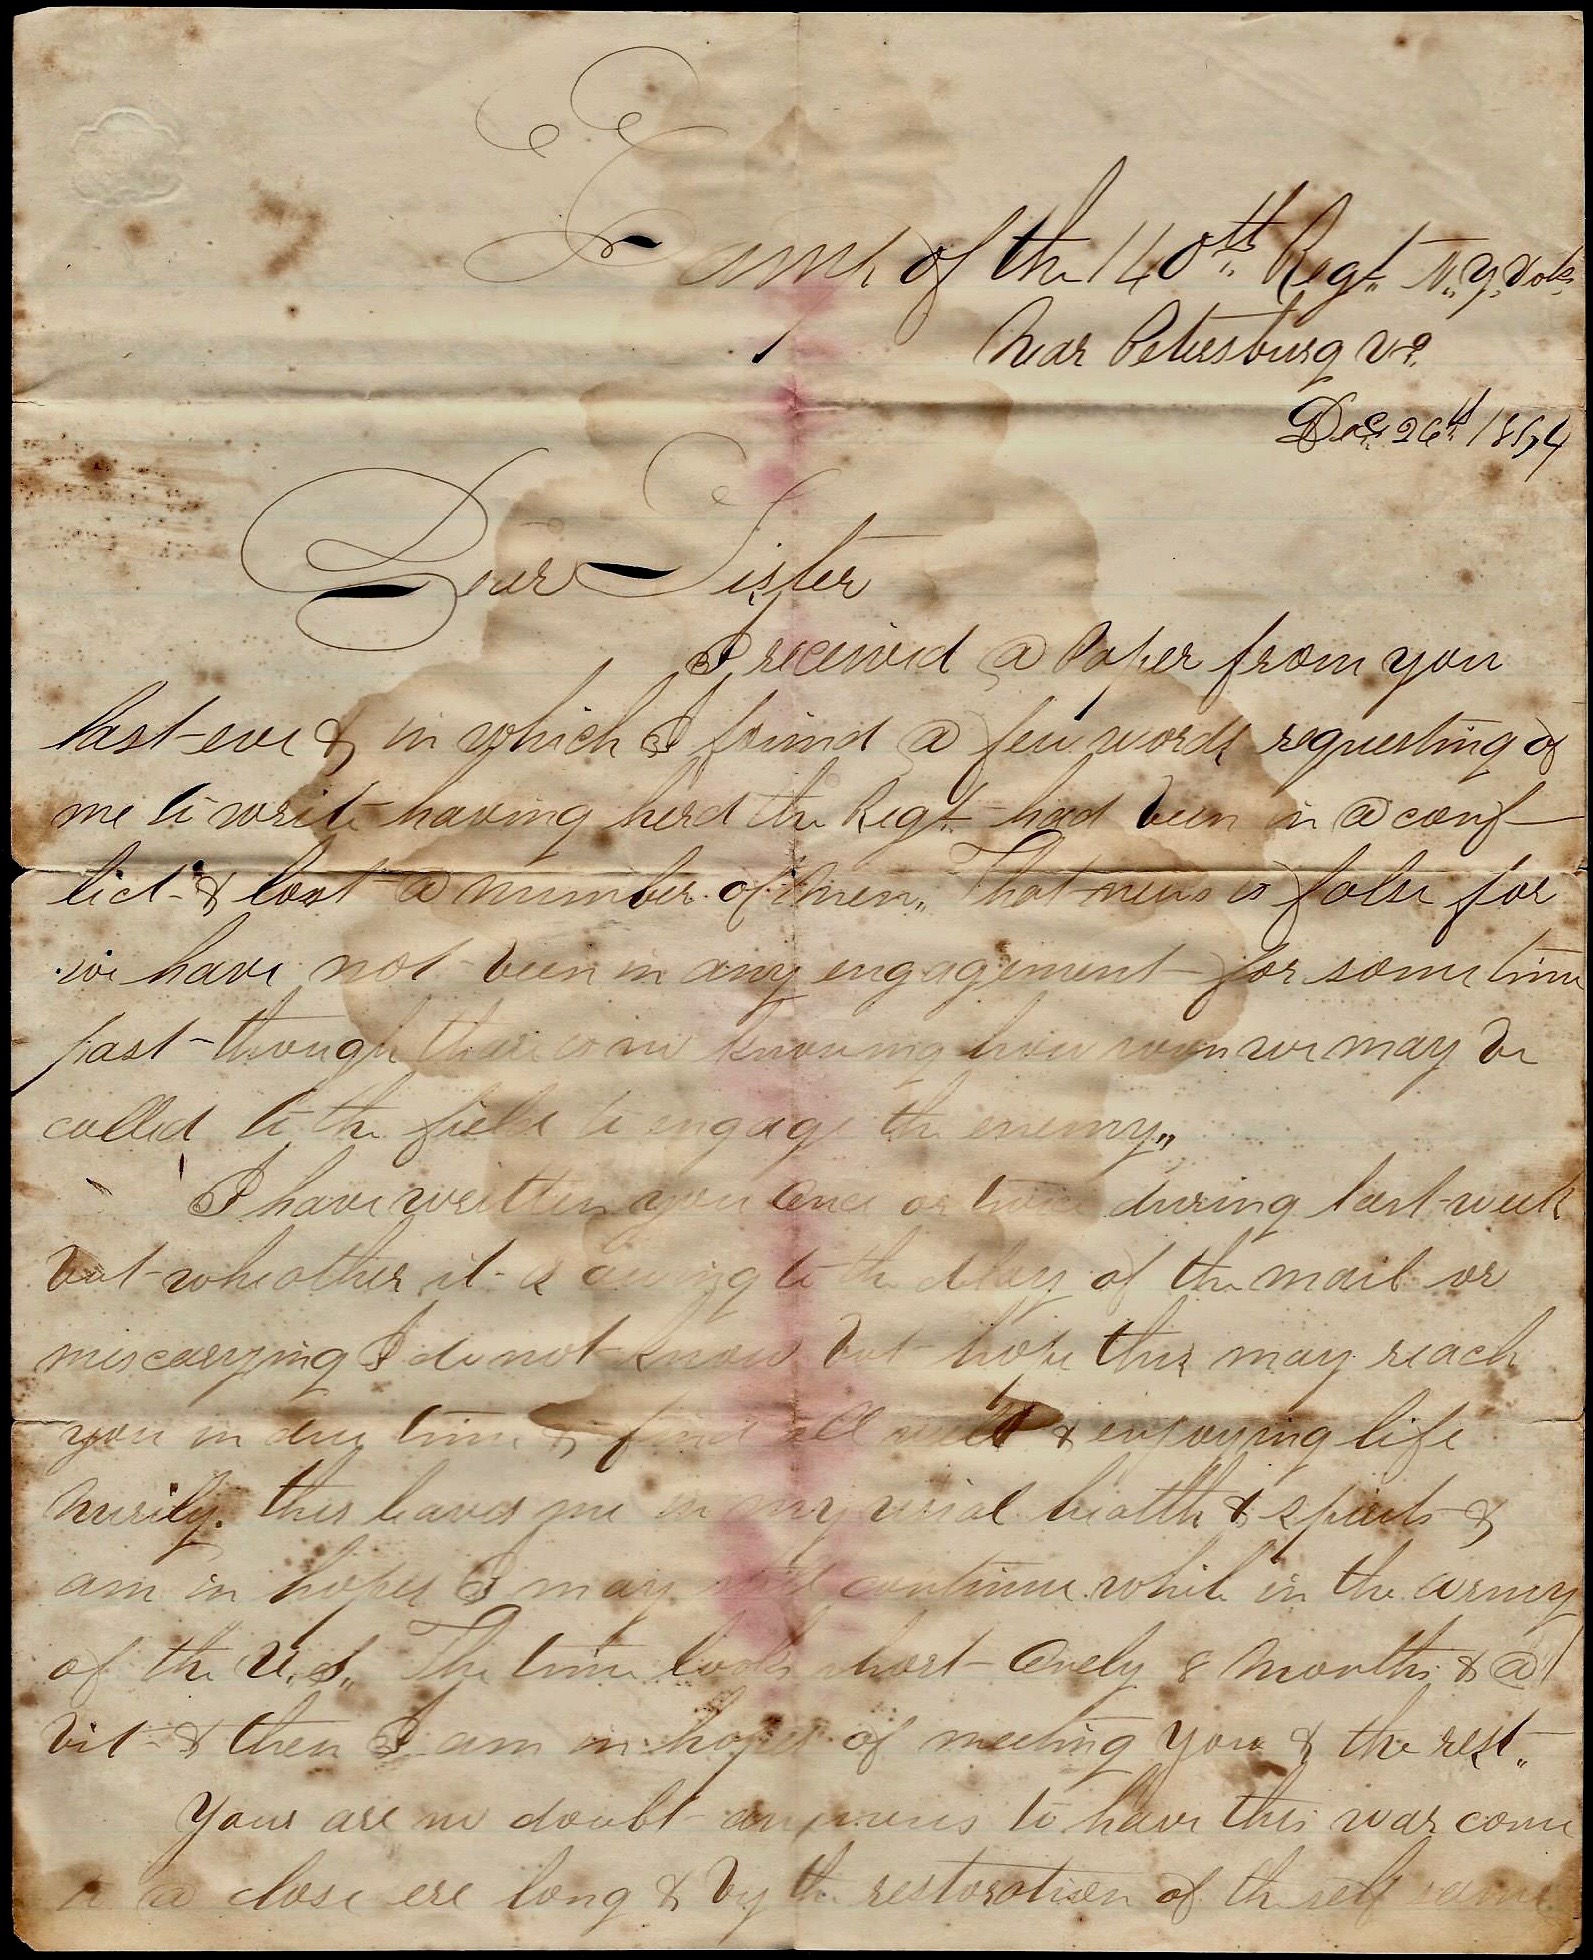 Camp of the 140th Regt. N.Y. Vols.
Near Petersburg Va.
Dec. 26th 1864
Dear Sister
I received a Paper from you
last eve & in which I found a few words requesting of
me to write having herd the Regt. had been in a conf-
lict & lost a number of men,, That news is false for
we have not been in any engagement for some time
past though thair is no knowing how soon we may be
called to the field to engage the enemy,,
I have written you once or twice during last week
but wheather it is owing to the delay of the mail or
miscarrying I do not know but hope this may reach
you in due time & find all well & enjoying life
Murily. this leaves me in my usial health & spirits &
am in hopes I may continue while in the army
of the U.S.,, The time looks short Onely 8 Months & a
bit & then I am in hopes of meeting you & the rest,,
Your are no doubt anxious to have this war come
to a close ere long & by the restoration of the self same